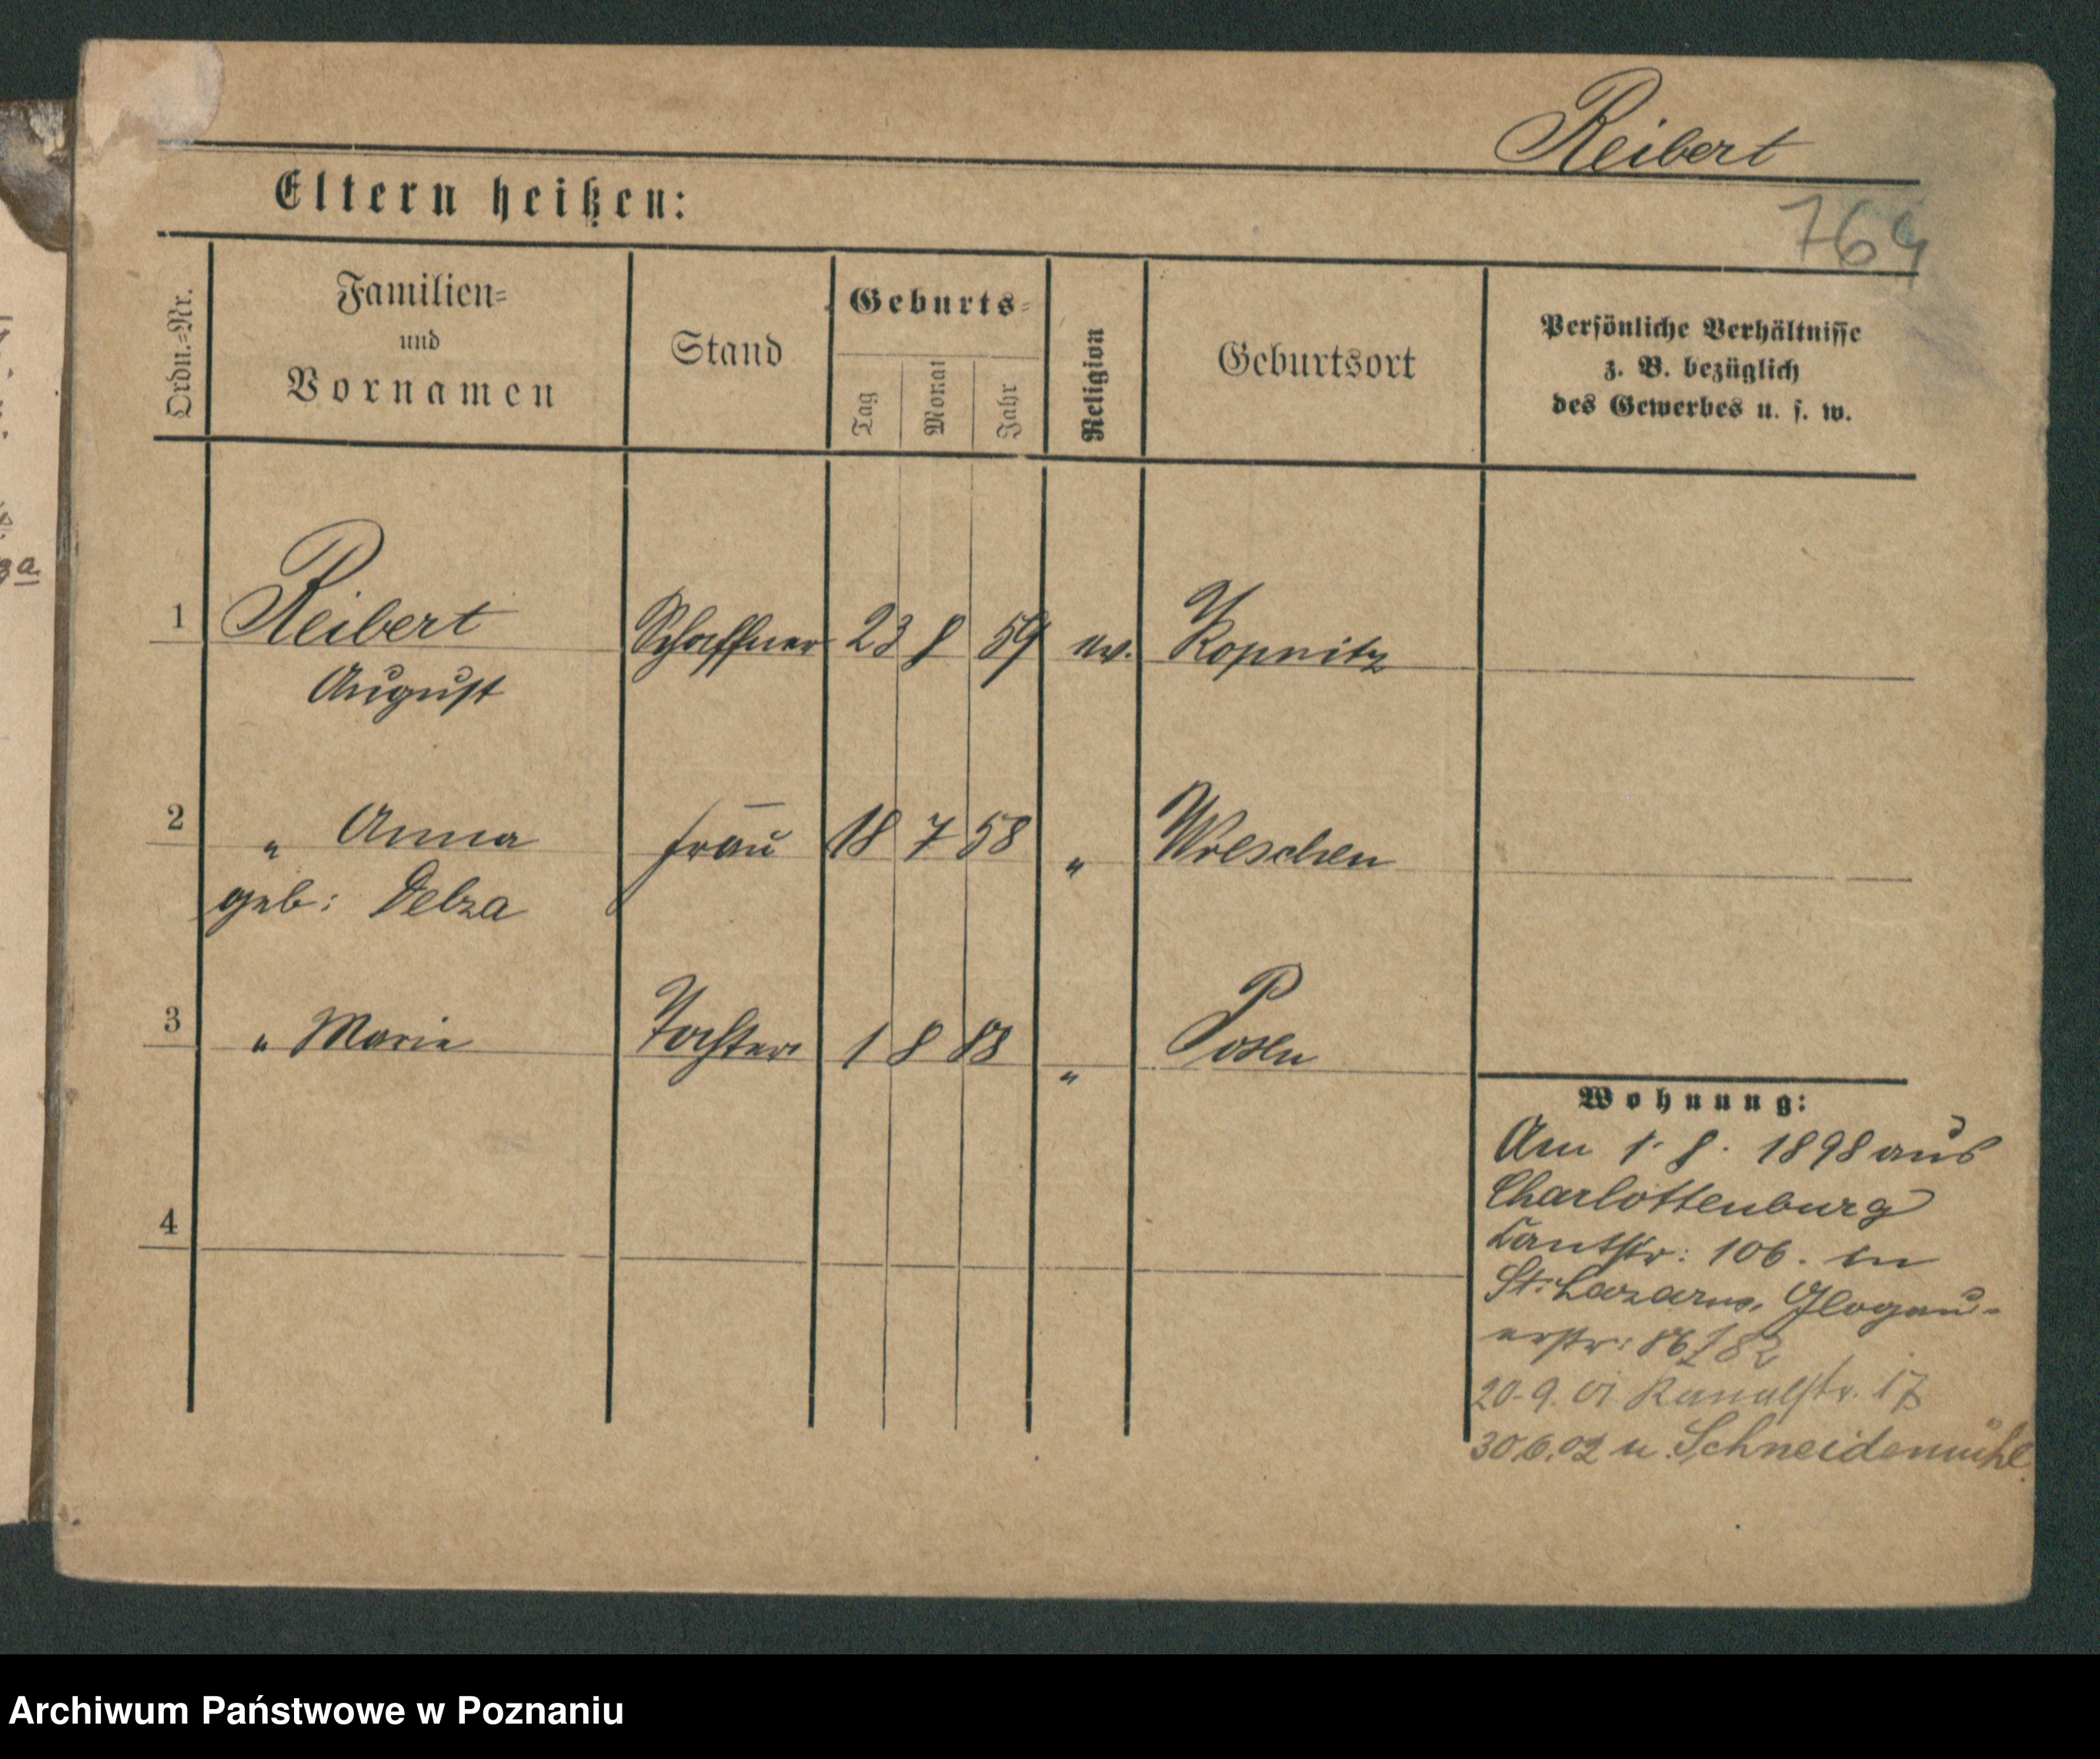 Reibert
Eltern heißen:
764
Ordn.=Nr.
Familien=
und
Vornamen
Stand
Geburts=
Tag
Monat
Jahr
Religion
Geburtsort
Persönliche Verhältnisse
z. B. bezüglich
des Gewerbes u. s. w.
1 Reibert Schaffner 23 8 59 ev. Kopnitz
August
2 " Anna Frau 18 7 58 " Wreschen
geb: Delza
3 " Marie Tochter 1 8 88 " Posen
4
Wohnung:
Am 1. 8. 1898 aus
Charlottenburg
Kantstr: 106. in
St. Lazarus, Glogau-
erstr: 82
20.9.01 Kanalstr. 17
30.6.02 n. Schneidemühl.
Archiwum Państwowe w Poznaniu